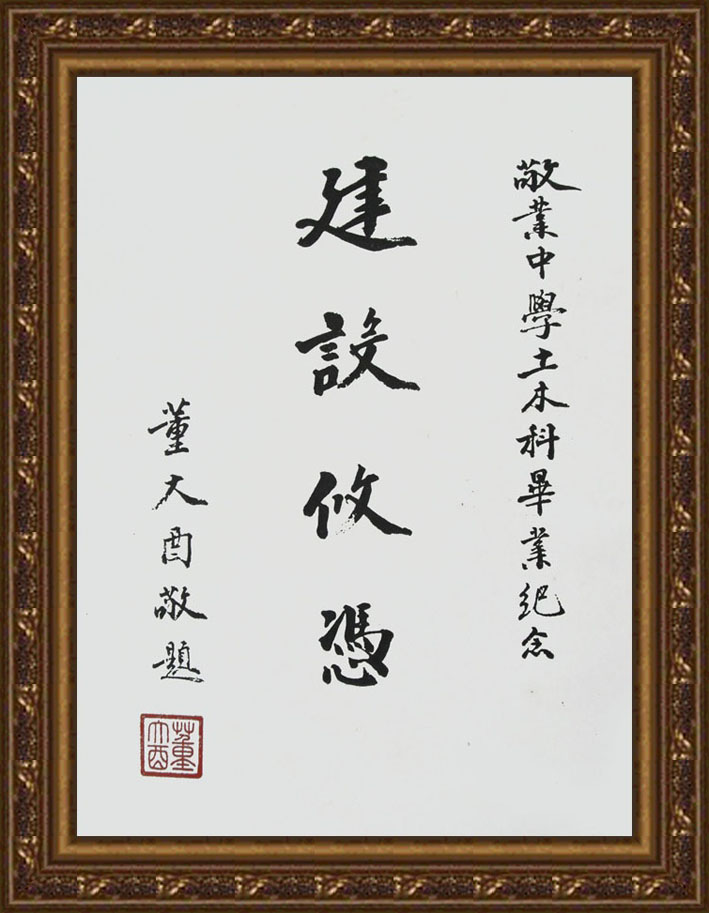 敬業中學土木科畢業紀念
建設攸憑
董大酉敬題
董大酉